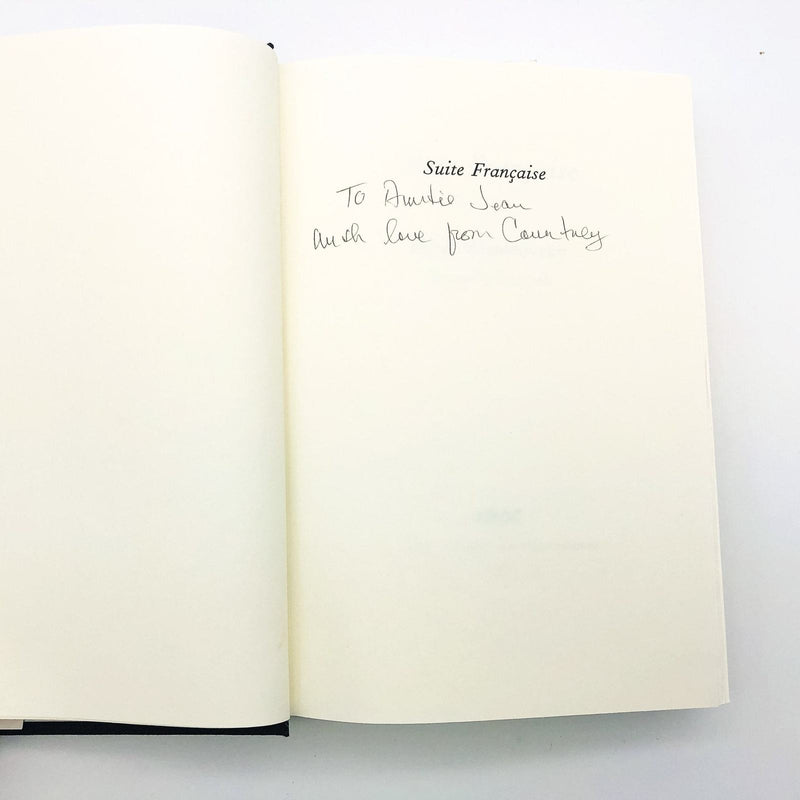 Suite Française
To Auntie Jean
with love from Courtney